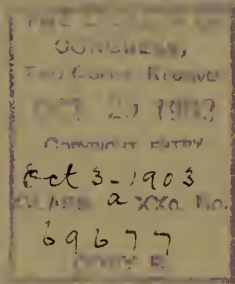 THE LIBRARY OF
CONGRESS,
Two Copies Received
OCT 2 1903
COPYRIGHT ENTRY
Oct 3-1903
CLASS a XXc. No.
69677
COPY B